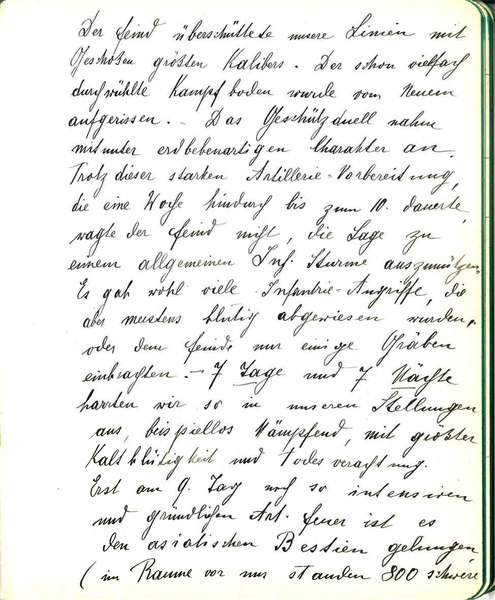 Der Feind überschüttete unsere Linien mit
Geschoßen größten Kalibers. Der schon vielfach
durchwühlte Kampfboden wurde vom Neuem
aufgerissen. – Das Geschützduell nahm
mitunter erdbebenartigen Charakter an.
Trotz dieser starken Artillerie-Vorbereitung,
die eine Woche hindurch bis zum 10. dauerte,
wagte der Feind nicht, die Lage zu
einem allgemeinen Inf. Sturme auszunützen.
Es gab wohl viele Infantrie-Angriffe, die
aber meistens blutig abgewiesen wurden,
oder dem Feinde nur einige Gräben
einbrachten. – 7 Tage und 7 Nächte
harrten wir so in unseren Stellungen
aus, beispiellos kämpfend, mit größter
Kaltblütigkeit und Todesverachtung.
Erst am 9. Tag nach so intensiven
und gründlichen Art. Feuer ist es
den asiatischen Bestien gelungen
(im Raume vor uns standen 800 schwere